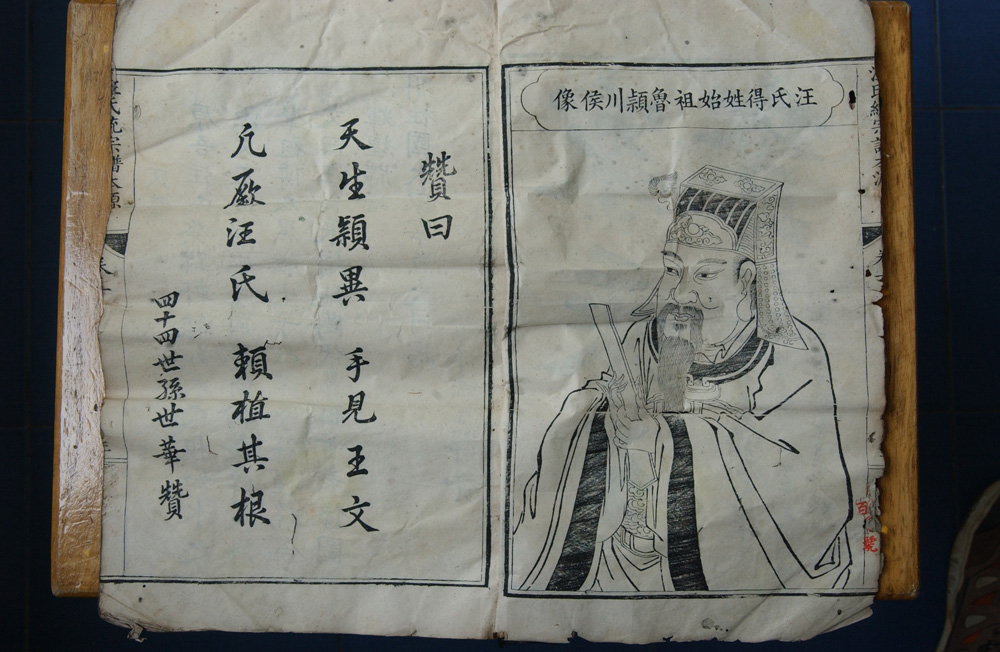 汪氏得姓始祖魯潁川侯像
贊曰
天生穎異　手見王文
凢厥汪氏　賴植其根
四十四世孫世華贊
汪氏統宗譜本源